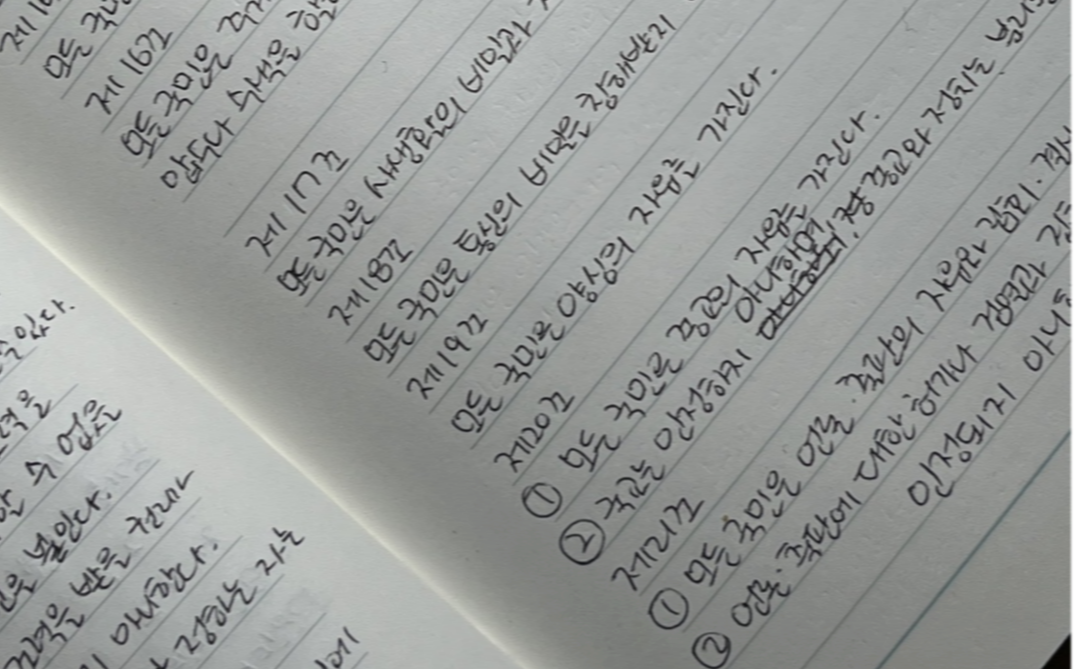 있다.
수 없음을
받을 권리가
아니한다.
정하는 자는
모든 국민
제16조
모든 국민은
압수나 수색을
제17조
모든 국민은 사생활의 비밀과
제18조
모든 국민은 통신의 비밀을 침해받지
제19조
모든 국민은 양심의 자유를 가진다.
제20조
① 모든 국민은 종교의 자유를 가진다.
② 국교는 인정하지 아니하며, 종교와 정치는
제21조
① 모든 국민은 언론·출판의 자유와 집회·결사
② 언론·출판에 대한 허가나 검열과
인정되지 아니